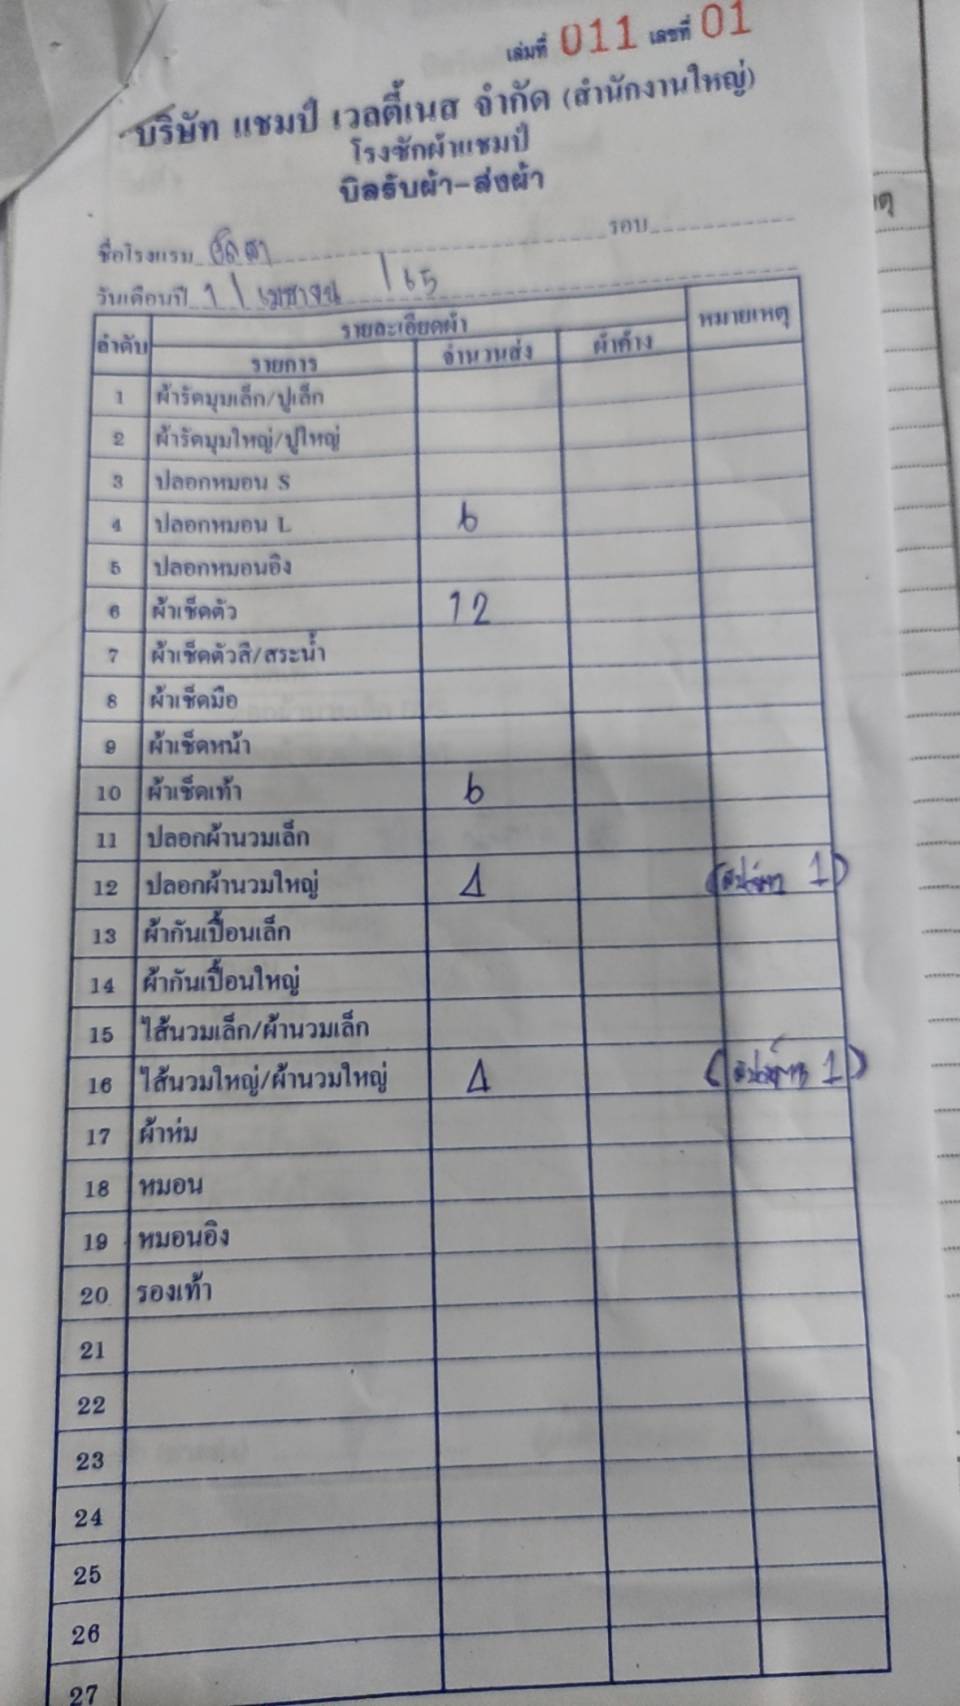 เล่มที่ 011 เลขที่ 01
บริษัท แชมป์ เวลตี้เนส จำกัด (สำนักงานใหญ่)
โรงซักผ้าแชมป์
บิลรับผ้า-ส่งผ้า
ชื่อโรงแรม รอบ
วันเดือนปี 1 / เมษายน / 65
ลำดับ รายละเอียดผ้า หมายเหตุ
รายการ จำนวนส่ง ผ้าค้าง
1 ผ้ารัดมุมเล็ก/ปูเล็ก
2 ผ้ารัดมุมใหญ่/ปูใหญ่
3 ปลอกหมอน S
4 ปลอกหมอน L 6
5 ปลอกหมอนอิง
6 ผ้าเช็ดตัว 12
7 ผ้าเช็ดตัวสี/สระน้ำ
8 ผ้าเช็ดมือ
9 ผ้าเช็ดหน้า
10 ผ้าเช็ดเท้า 6
11 ปลอกผ้านวมเล็ก
12 ปลอกผ้านวมใหญ่ 4 ( 1)
13 ผ้ากันเปื้อนเล็ก
14 ผ้ากันเปื้อนใหญ่
15 ไส้นวมเล็ก/ผ้านวมเล็ก
16 ไส้นวมใหญ่/ผ้านวมใหญ่ 4 ( 1)
17 ผ้าห่ม
18 หมอน
19 หมอนอิง
20 รองเท้า
21
22
23
24
25
26
27